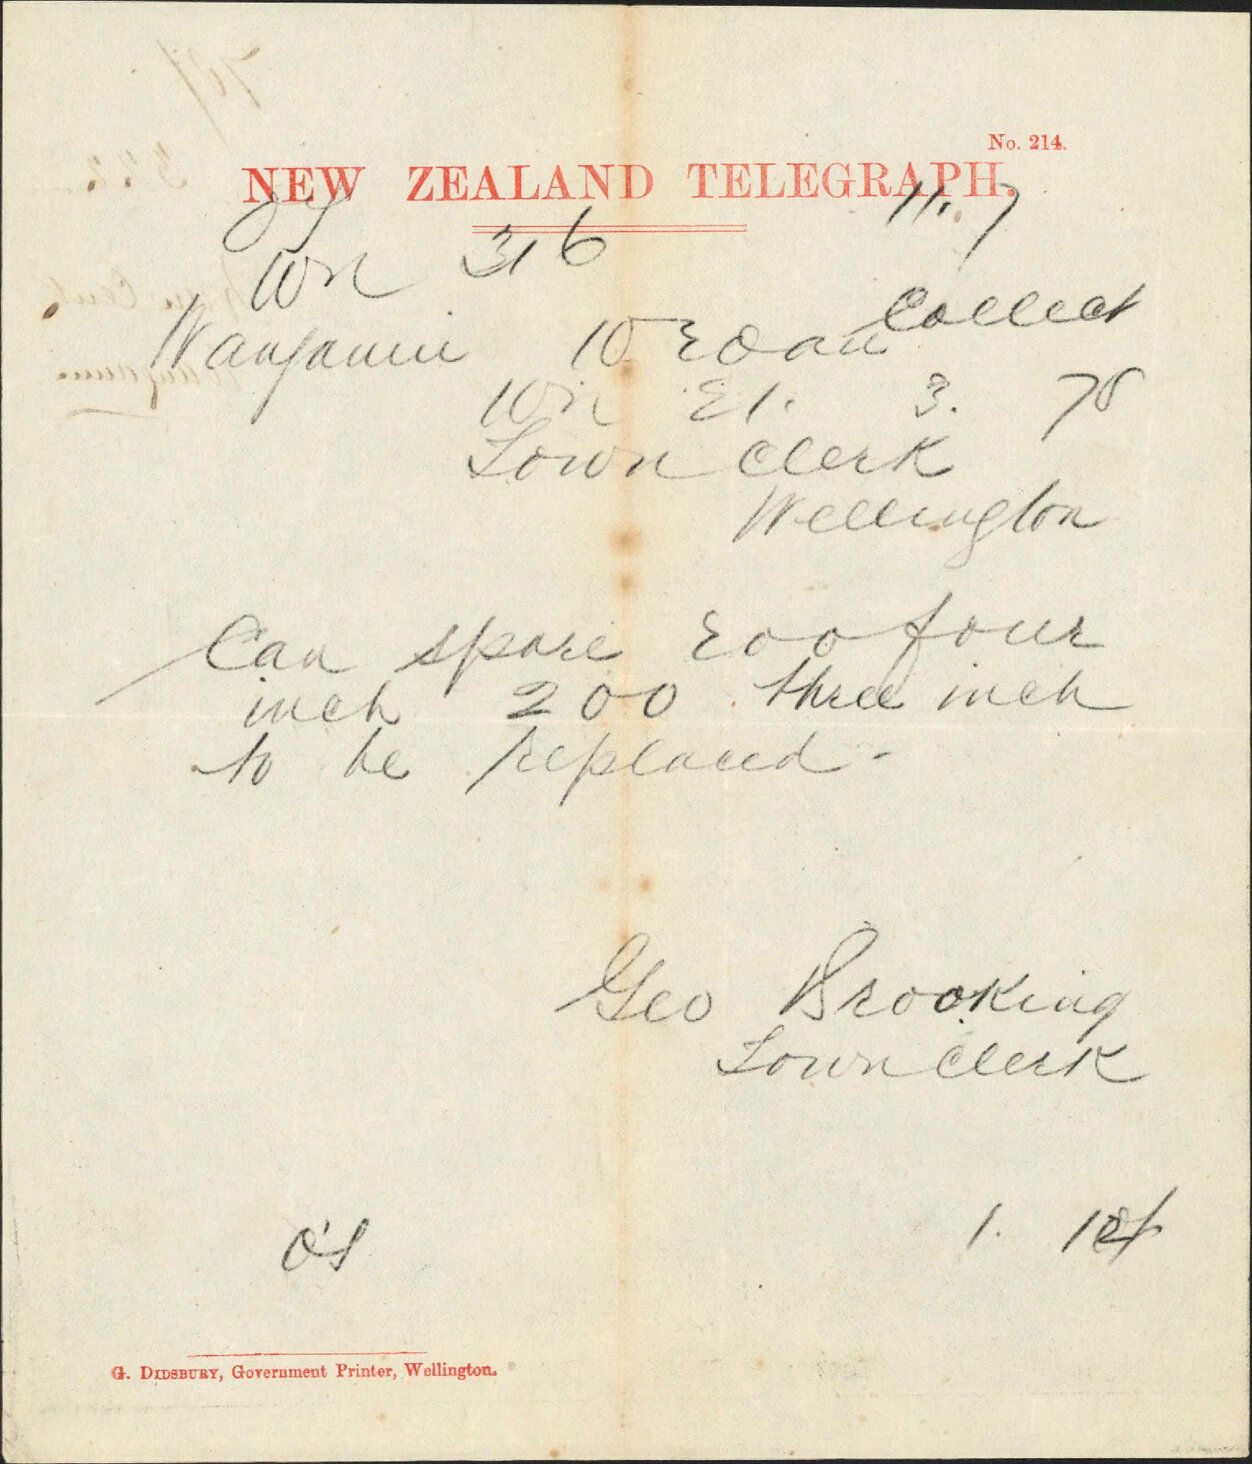 No. 214.
NEW ZEALAND TELEGRAPH.
11. 7
Wn 316
Collect
Wanganui 10
Wn 21. 3. 78
Town Clerk
Wellington
Can spare 200 four
inch 200 three inch
to be replaced -
Geo Brooking
Town Clerk
1.
G. DIDSBURY, Government Printer, Wellington.